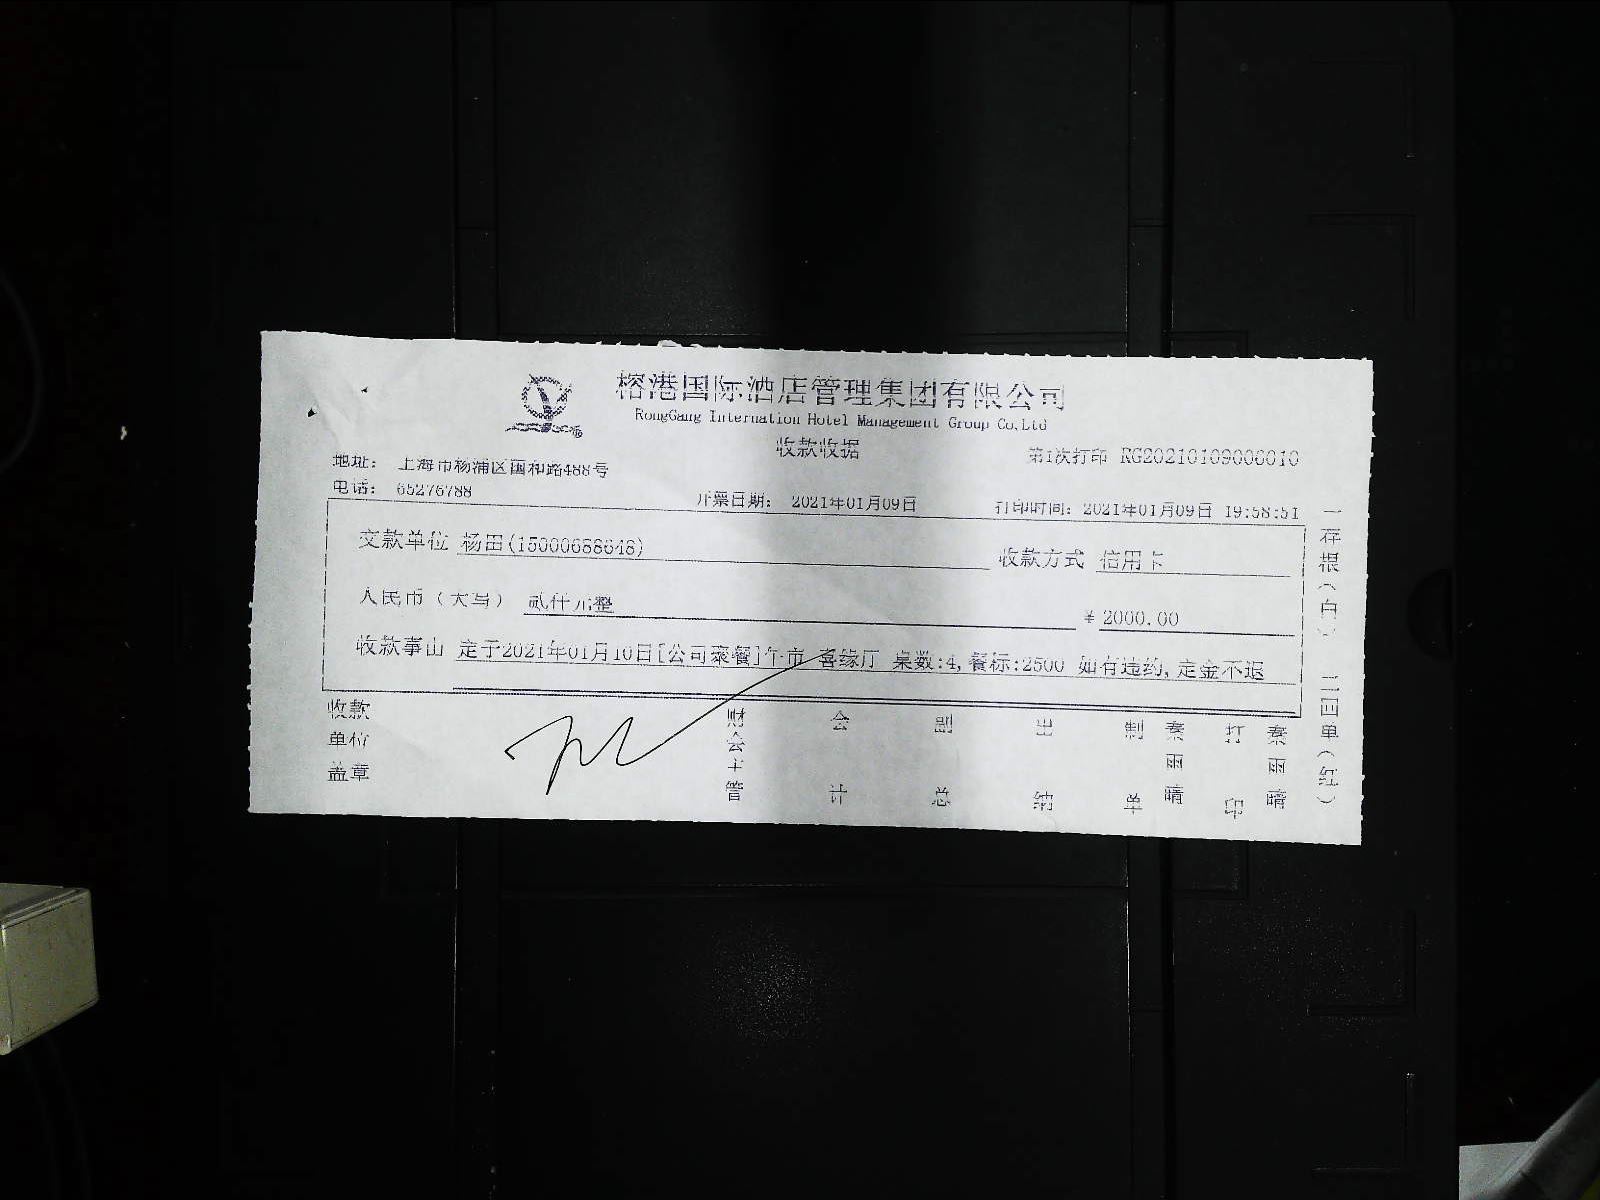 榕港国际酒店管理集团有限公司
RongGang Internation Hotel Management Group Co,Ltd
收款收据
第1次打印 RG20210109000010
地址： 上海市杨浦区国和路488号
电话： 65276788
开票日期： 2021年01月09日
打印时间：2021年01月09日 19:58:51
交款单位 杨田(15000688648)
收款方式 信用卡
人民币（大写） 贰仟元整
¥ 2000.00
收款事由 定于2021年01月10日[公司聚餐]午市 喜缘厅 桌数:4,餐标:2500 如有违约,定金不退
收款单位盖章
财会主管
会计
副总
出纳
制单
秦雨晴
打印
秦雨晴
一存根（白） 二回单（红）